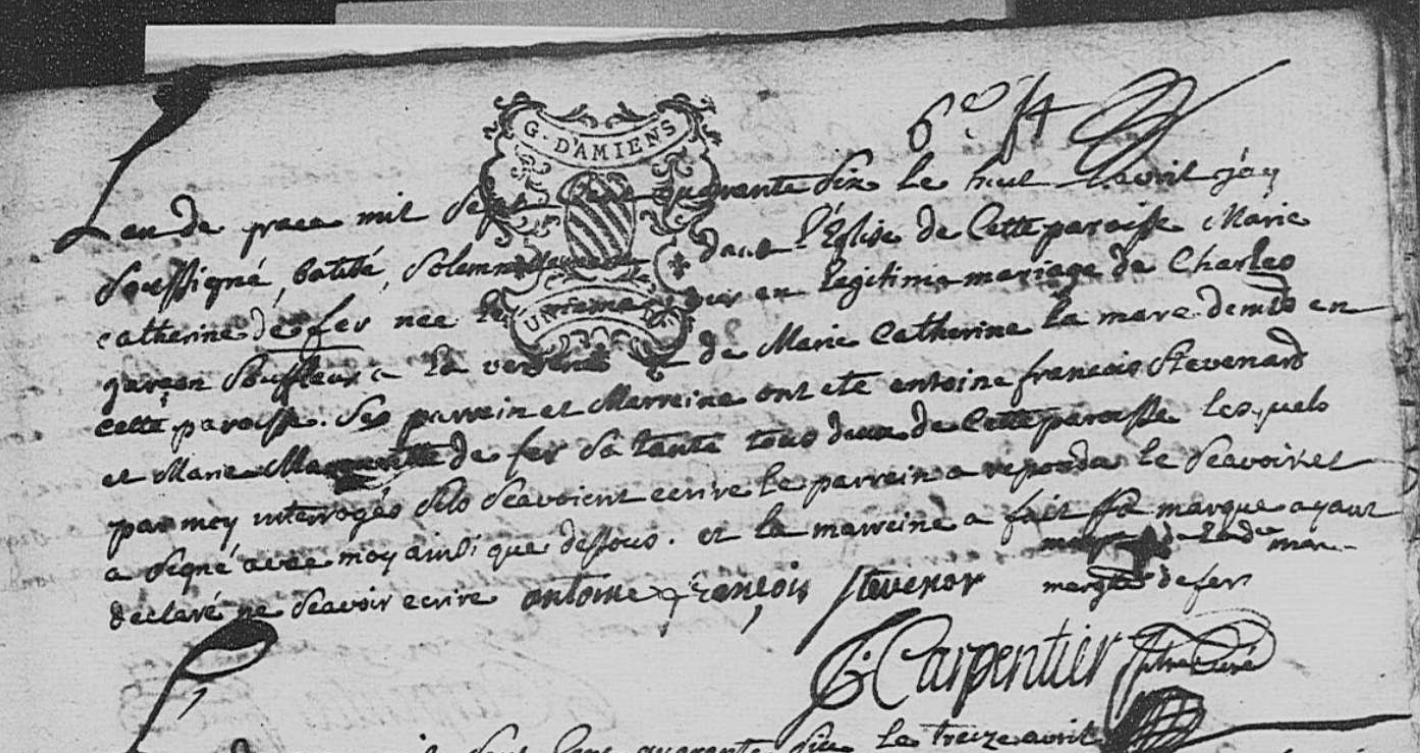 6.e f.t
G. D'AMIENS
L'an de grace mil sept cens quarante six le huit avril j'ay
soussigné, batisé, solemnellement dans l'Eglise de cette paroisse Marie
catherine de fer née le en legitime mariage de Charles
garçon souffleur a la verrerie de Marie Catherine la mare demts en
cette paroisse. Ses parrein et Marreine ont eté antoine francois Stevenard
et Marie Margueritte de fer sa tante tous deux de cette paroisse lesquels
par moy interrogés s'ils sçavoient ecrire le parrein a repondu le sçavoir et
a signé avec moy ainsi que dessous. et la marreine a fait sa marque ayant
declaré ne sçavoir ecrire antoine françois stevenor
marque de lade mar-
margte de fer
Carpentier
le treize avril